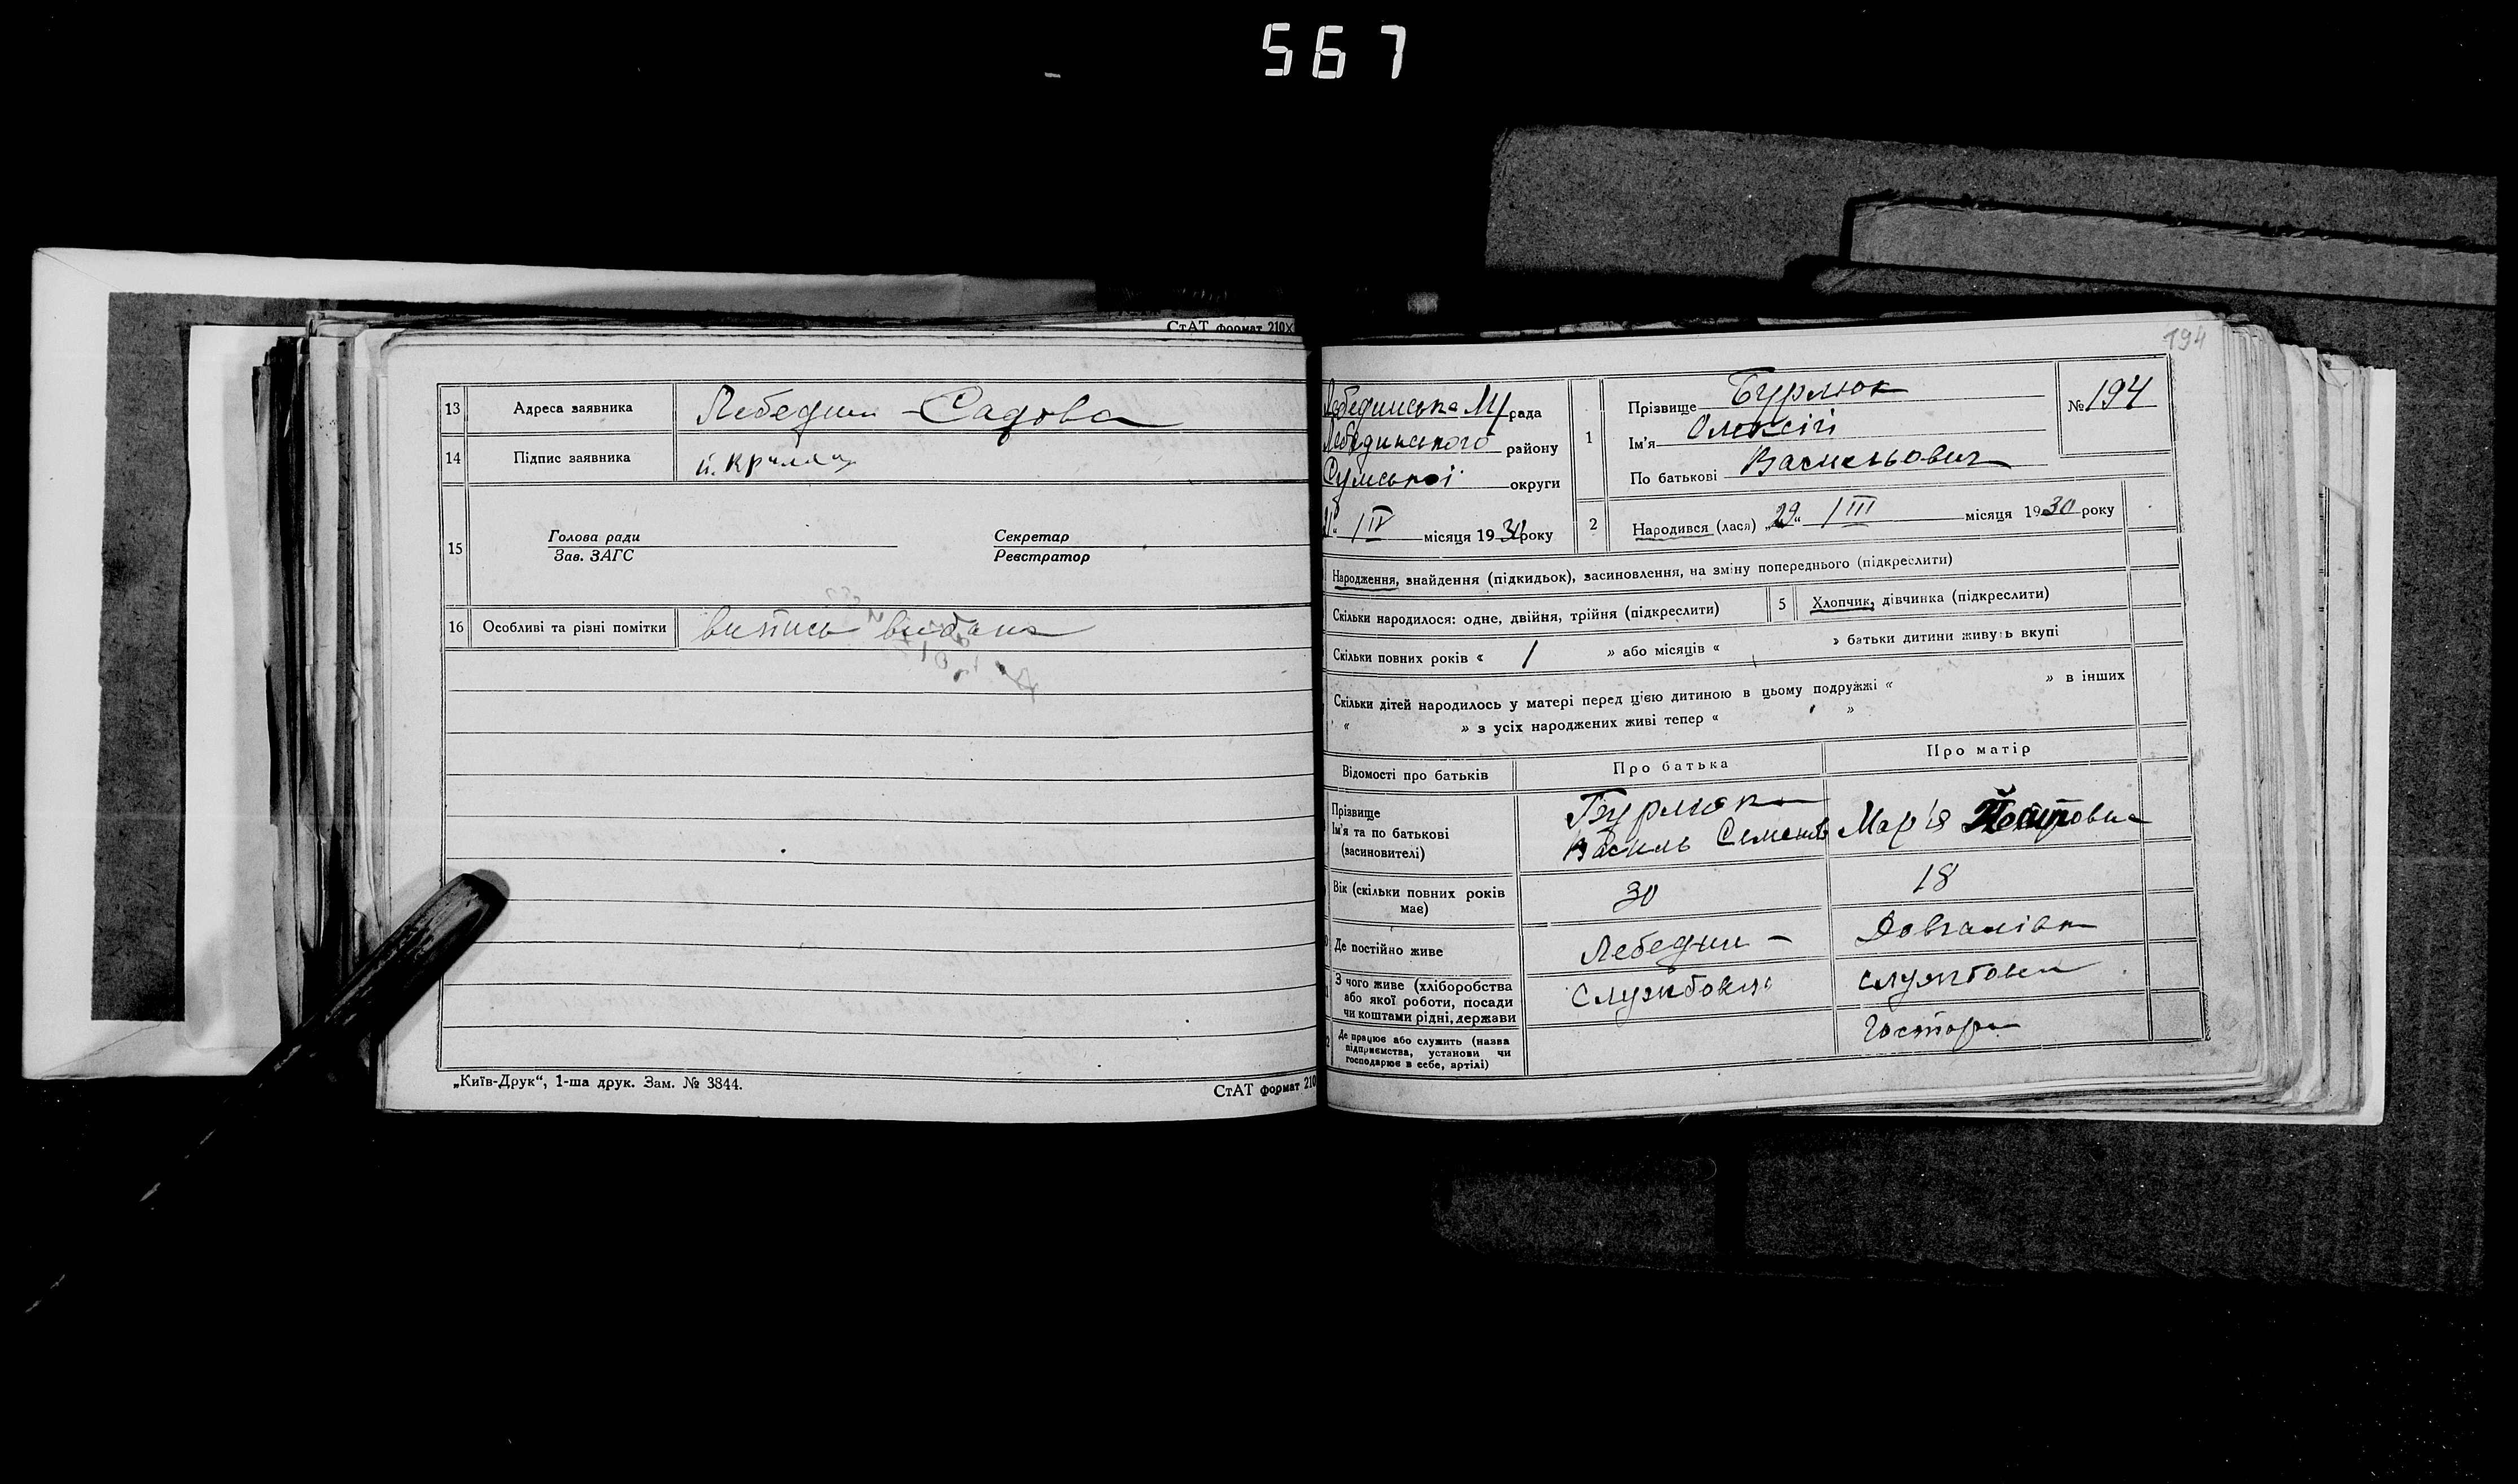 567
СтАТ формат 210×
13 Адреса заявника Лебедин - Садова
14 Підпис заявника
15 Голова ради Секретар
Зав. ЗАГС Реєстратор
16 Особливі та різні помітки випись видана
„Київ-Друк“, 1-ша друк. Зам. № 3844.
СтАТ формат 210
194
Лебединська М рада
Лебединського району
Сумської округи
IV місяця 1930 року
1 Прізвище Бурлюк
Ім'я Олексій
По батькові Васильович
№ 194
2 Народився (лася) „29“ III місяця 1930 року
Народження, знайдення (підкидьок), засиновлення, на зміну попереднього (підкреслити)
Скільки народилося: одне, двійня, трійня (підкреслити) 5 Хлопчик, дівчинка (підкреслити)
Скільки повних років « 1 » або місяців « » батьки дитини живуть вкупі
Скільки дітей народилось у матері перед цією дитиною в цьому подружжі « » в інших
« » з усіх народжених живі тепер « »
Відомості про батьків Про батька Про матір
Прізвище Бурлюк
Ім'я та по батькові Василь Семенів Мар'я Петровна
(засиновителі)
Вік (скільки повних років має) 30 18
Де постійно живе Лебедин -
З чого живе (хліборобства
або якої роботи, посади
чи коштами рідні, держави
Службовець службовця
Де працює або служить (назва
підприємства, установи чи
господарює в себе, артілі)